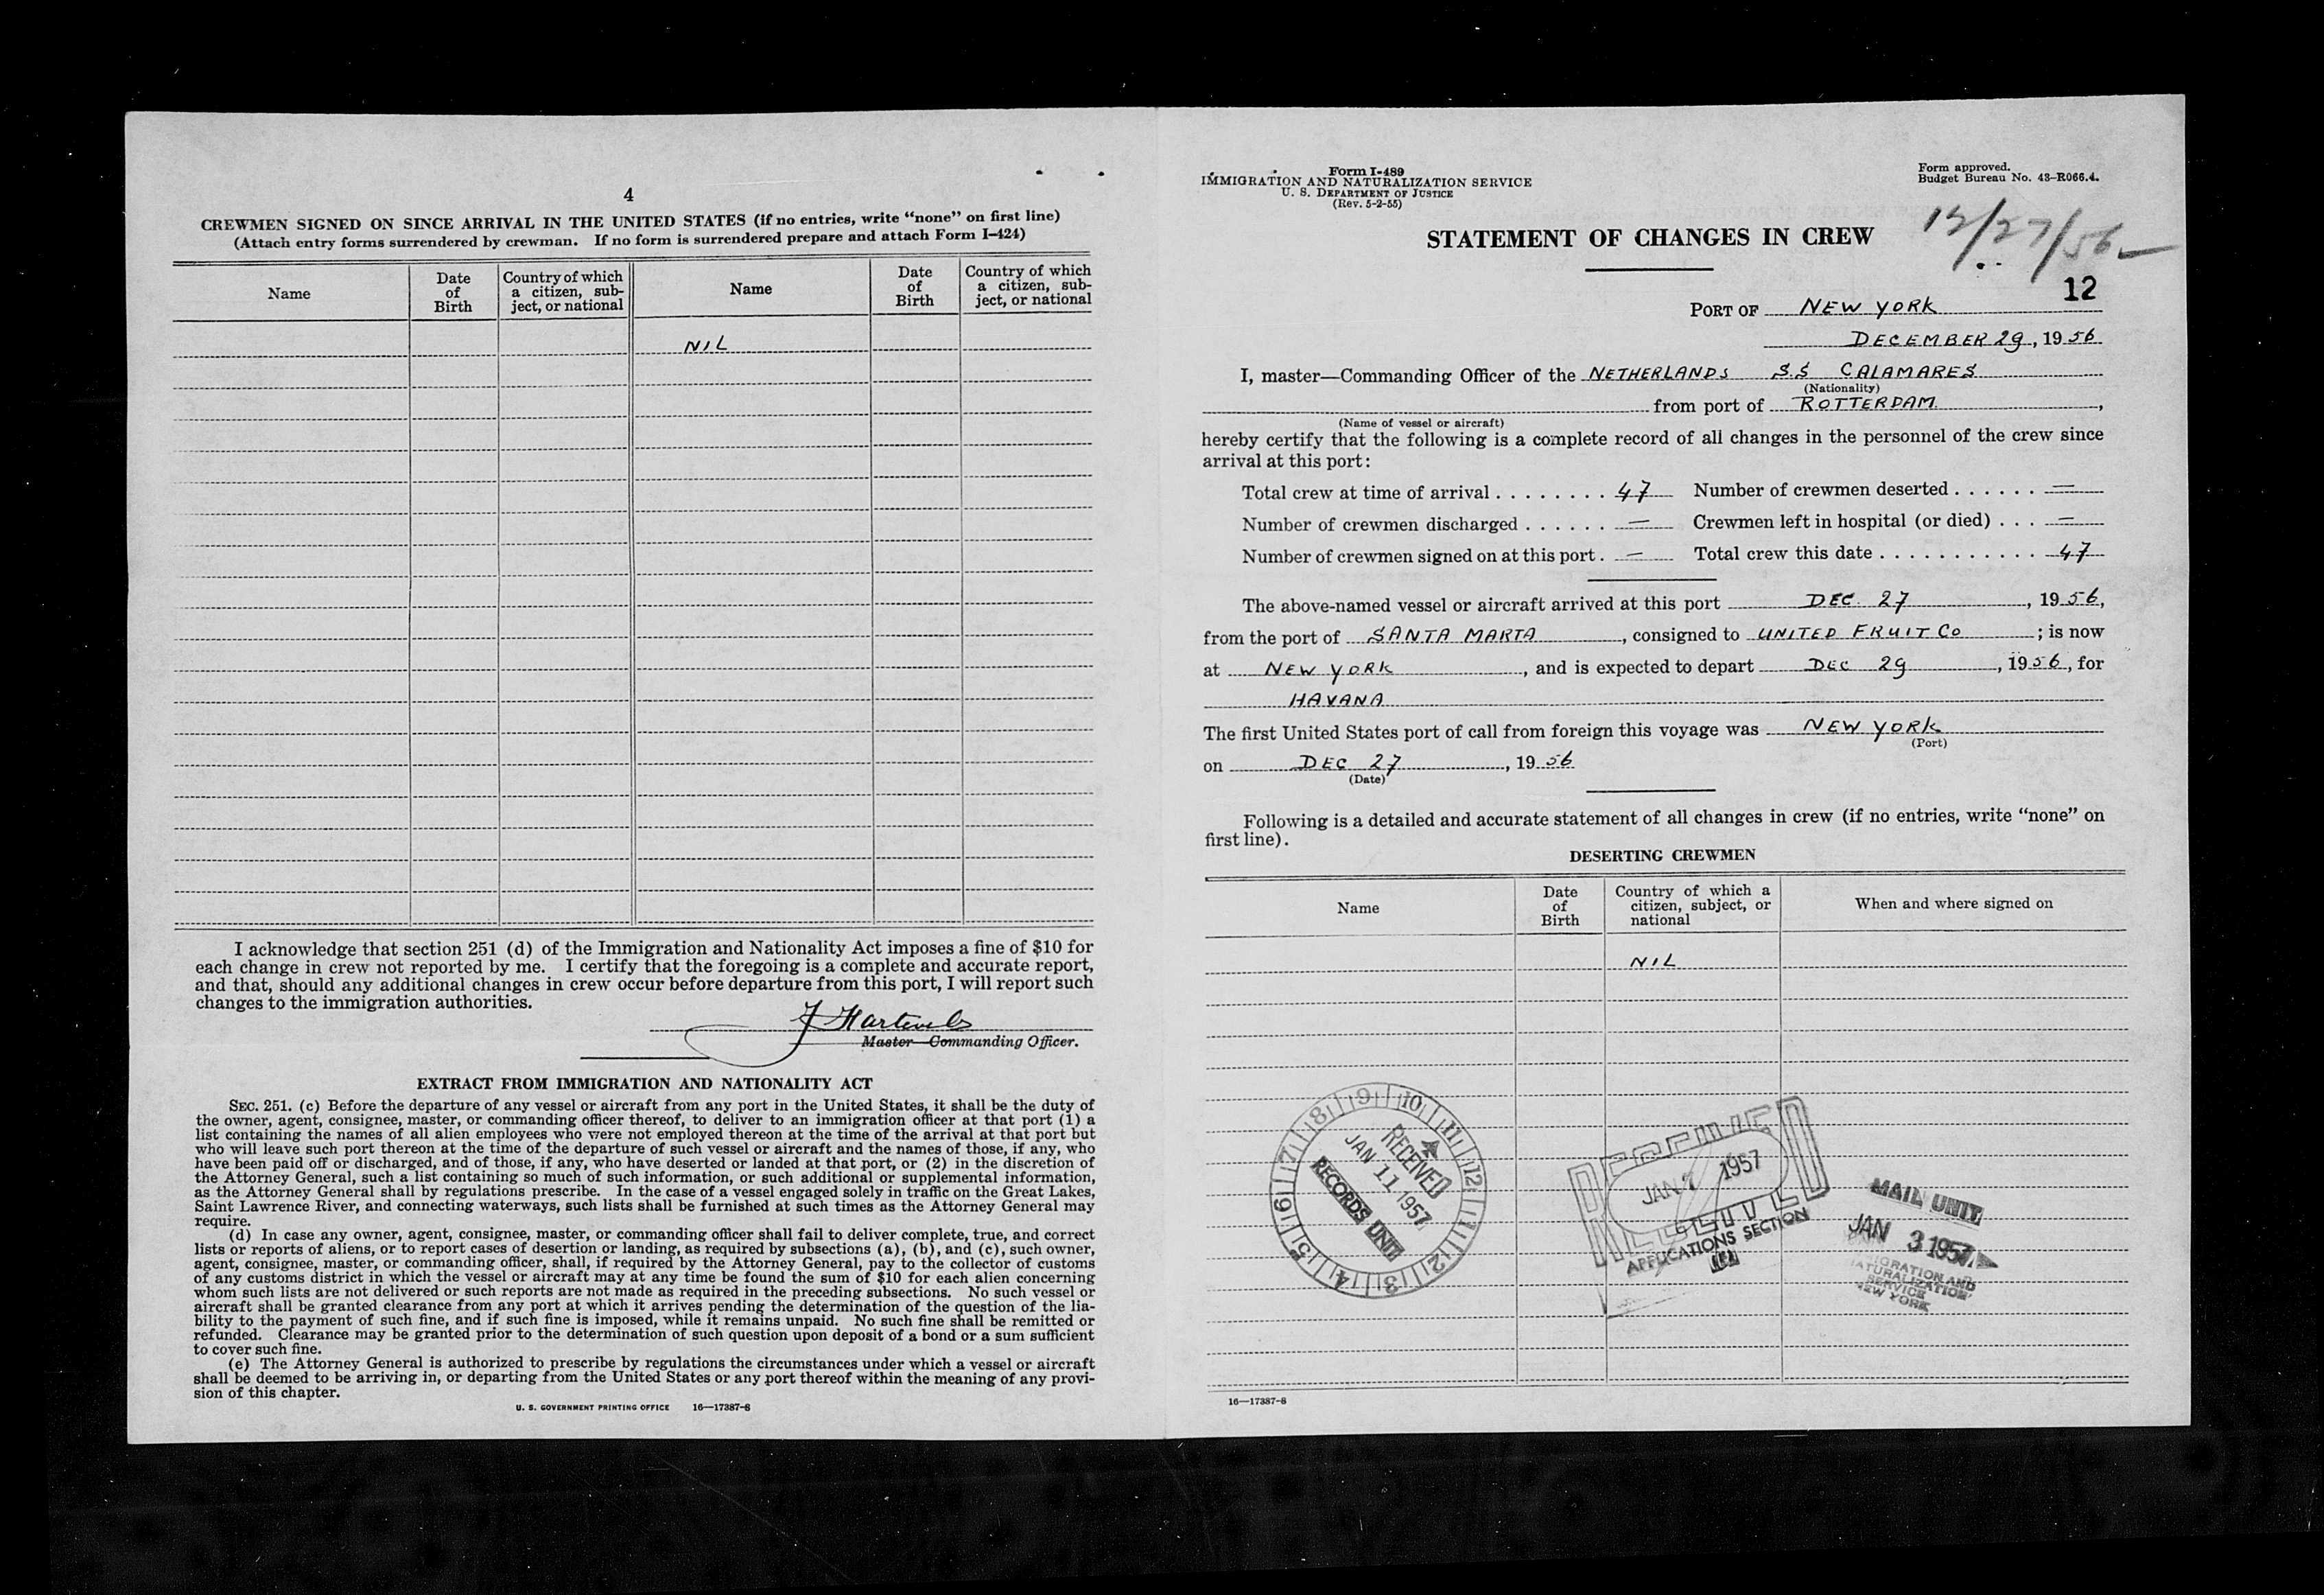 4
CREWMEN SIGNED ON SINCE ARRIVAL IN THE UNITED STATES (if no entries, write “none” on first line)
(Attach entry forms surrendered by crewman. If no form is surrendered prepare and attach Form I-424)
Name
Date
of
Birth
Country of which
a citizen, sub-
ject, or national
Name
Date
of
Birth
Country of which
a citizen, sub-
ject, or national
NIL
I acknowledge that section 251 (d) of the Immigration and Nationality Act imposes a fine of $10 for
each change in crew not reported by me. I certify that the foregoing is a complete and accurate report,
and that, should any additional changes in crew occur before departure from this port, I will report such
changes to the immigration authorities.
Master—Commanding Officer.
EXTRACT FROM IMMIGRATION AND NATIONALITY ACT
SEC. 251. (c) Before the departure of any vessel or aircraft from any port in the United States, it shall be the duty of
the owner, agent, consignee, master, or commanding officer thereof, to deliver to an immigration officer at that port (1) a
list containing the names of all alien employees who were not employed thereon at the time of the arrival at that port but
who will leave such port thereon at the time of the departure of such vessel or aircraft and the names of those, if any, who
have been paid off or discharged, and of those, if any, who have deserted or landed at that port, or (2) in the discretion of
the Attorney General, such a list containing so much of such information, or such additional or supplemental information,
as the Attorney General shall by regulations prescribe. In the case of a vessel engaged solely in traffic on the Great Lakes,
Saint Lawrence River, and connecting waterways, such lists shall be furnished at such times as the Attorney General may
require.
(d) In case any owner, agent, consignee, master, or commanding officer shall fail to deliver complete, true, and correct
lists or reports of aliens, or to report cases of desertion or landing, as required by subsections (a), (b), and (c), such owner,
agent, consignee, master, or commanding officer, shall, if required by the Attorney General, pay to the collector of customs
of any customs district in which the vessel or aircraft may at any time be found the sum of $10 for each alien concerning
whom such lists are not delivered or such reports are not made as required in the preceding subsections. No such vessel or
aircraft shall be granted clearance from any port at which it arrives pending the determination of the question of the lia-
bility to the payment of such fine, and if such fine is imposed, while it remains unpaid. No such fine shall be remitted or
refunded. Clearance may be granted prior to the determination of such question upon deposit of a bond or a sum sufficient
to cover such fine.
(e) The Attorney General is authorized to prescribe by regulations the circumstances under which a vessel or aircraft
shall be deemed to be arriving in, or departing from the United States or any port thereof within the meaning of any provi-
sion of this chapter.
U. S. GOVERNMENT PRINTING OFFICE 16—17387-8
Form I-489
IMMIGRATION AND NATURALIZATION SERVICE
U. S. DEPARTMENT OF JUSTICE
(Rev. 5-2-55)
Form approved.
Budget Bureau No. 43-R066.4.
12/27/56
STATEMENT OF CHANGES IN CREW
12
PORT OF NEW YORK
DECEMBER 29, 1956
I, master—Commanding Officer of the NETHERLANDS S.S CALAMARES
(Nationality)
from port of ROTTERDAM,
(Name of vessel or aircraft)
hereby certify that the following is a complete record of all changes in the personnel of the crew since
arrival at this port:
Total crew at time of arrival . . . . . . . . 47 Number of crewmen deserted . . . . . . —
Number of crewmen discharged . . . . . . — Crewmen left in hospital (or died) . . . —
Number of crewmen signed on at this port . — Total crew this date . . . . . . . . . . . . 47
The above-named vessel or aircraft arrived at this port DEC. 27, 1956,
from the port of SANTA MARTA, consigned to UNITED FRUIT Co; is now
at NEW YORK, and is expected to depart DEC 29, 1956, for
HAVANA
The first United States port of call from foreign this voyage was NEW YORK
(Port)
on DEC 27, 1956
(Date)
Following is a detailed and accurate statement of all changes in crew (if no entries, write “none” on
first line).
DESERTING CREWMEN
Name
Date
of
Birth
Country of which a
citizen, subject, or
national
When and where signed on
NIL
9 10 11 12 1 2 3 4 5 6 7 8
RECEIVED
JAN 11 1957
RECORDS UNIT
RECEIVED
JAN 7 1957
APPLICATIONS SECTION
MAIL UNIT
JAN 3 1957
IMMIGRATION AND
NATURALIZATION
SERVICE
NEW YORK
16—17387-8